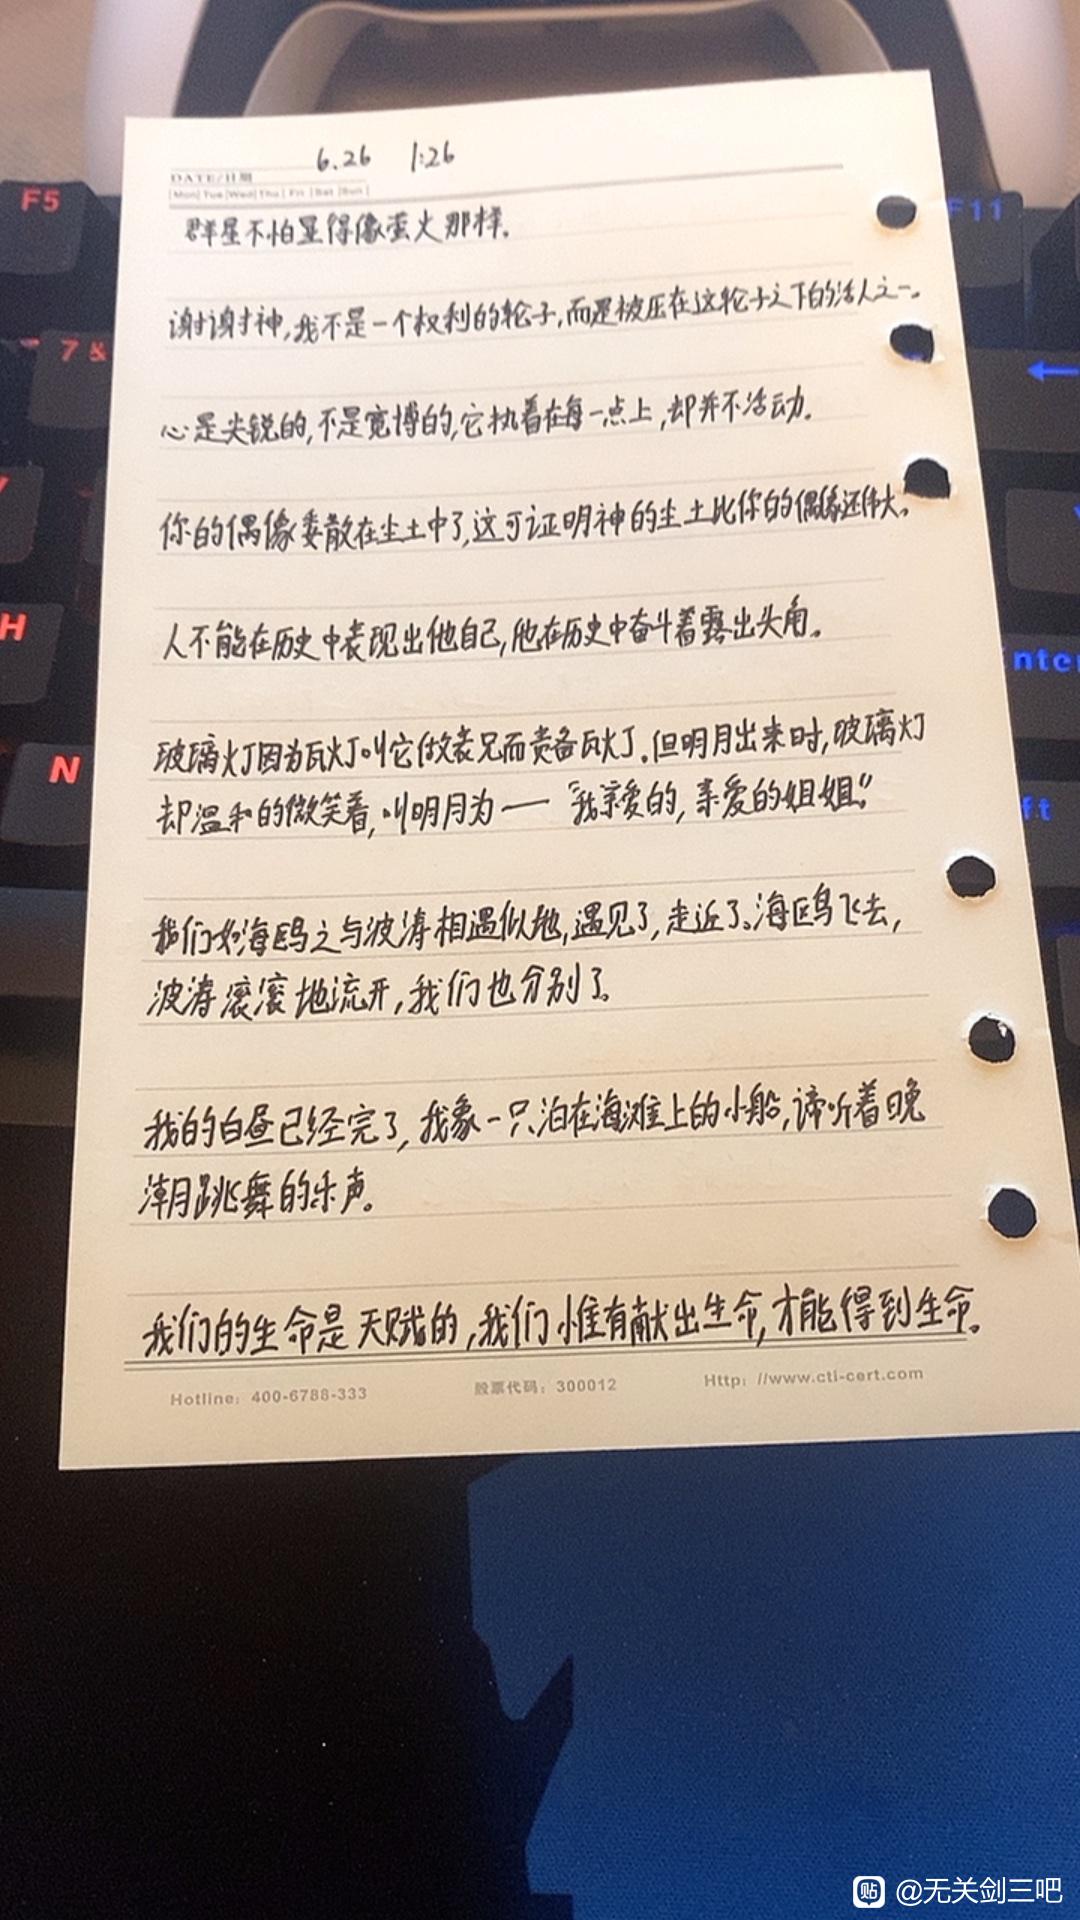 6.26 1:26
DATE/日期
Mon Tue Wed Thu Fri Sat Sun
群星不怕显得像萤火那样。
谢谢神,我不是一个权利的轮子,而是被压在这轮子之下的活人之一。
心是尖锐的,不是宽博的,它执着在每一点上,却并不活动。
你的偶像委散在尘土中了,这可证明神的尘土比你的偶像还伟大。
人不能在历史中表现出他自己,他在历史中奋斗着露出头角。
玻璃灯因为瓦灯叫它做表兄而责备瓦灯。但明月出来时,玻璃灯
却温和的微笑着,叫明月为——“我亲爱的,亲爱的姐姐。”
我们如海鸥之与波涛相遇似地,遇见了,走近了。海鸥飞去,
波涛滚滚地流开,我们也分别了。
我的白昼已经完了,我象一只泊在海滩上的小船,谛听着晚
潮跳舞的乐声。
我们的生命是天赋的,我们惟有献出生命,才能得到生命。
Hotline: 400-6788-333 股票代码: 300012 Http: //www.cti-cert.com
F5
F11
7 &
←
Y
H
N
nte
ft
贴 @无关剑三吧